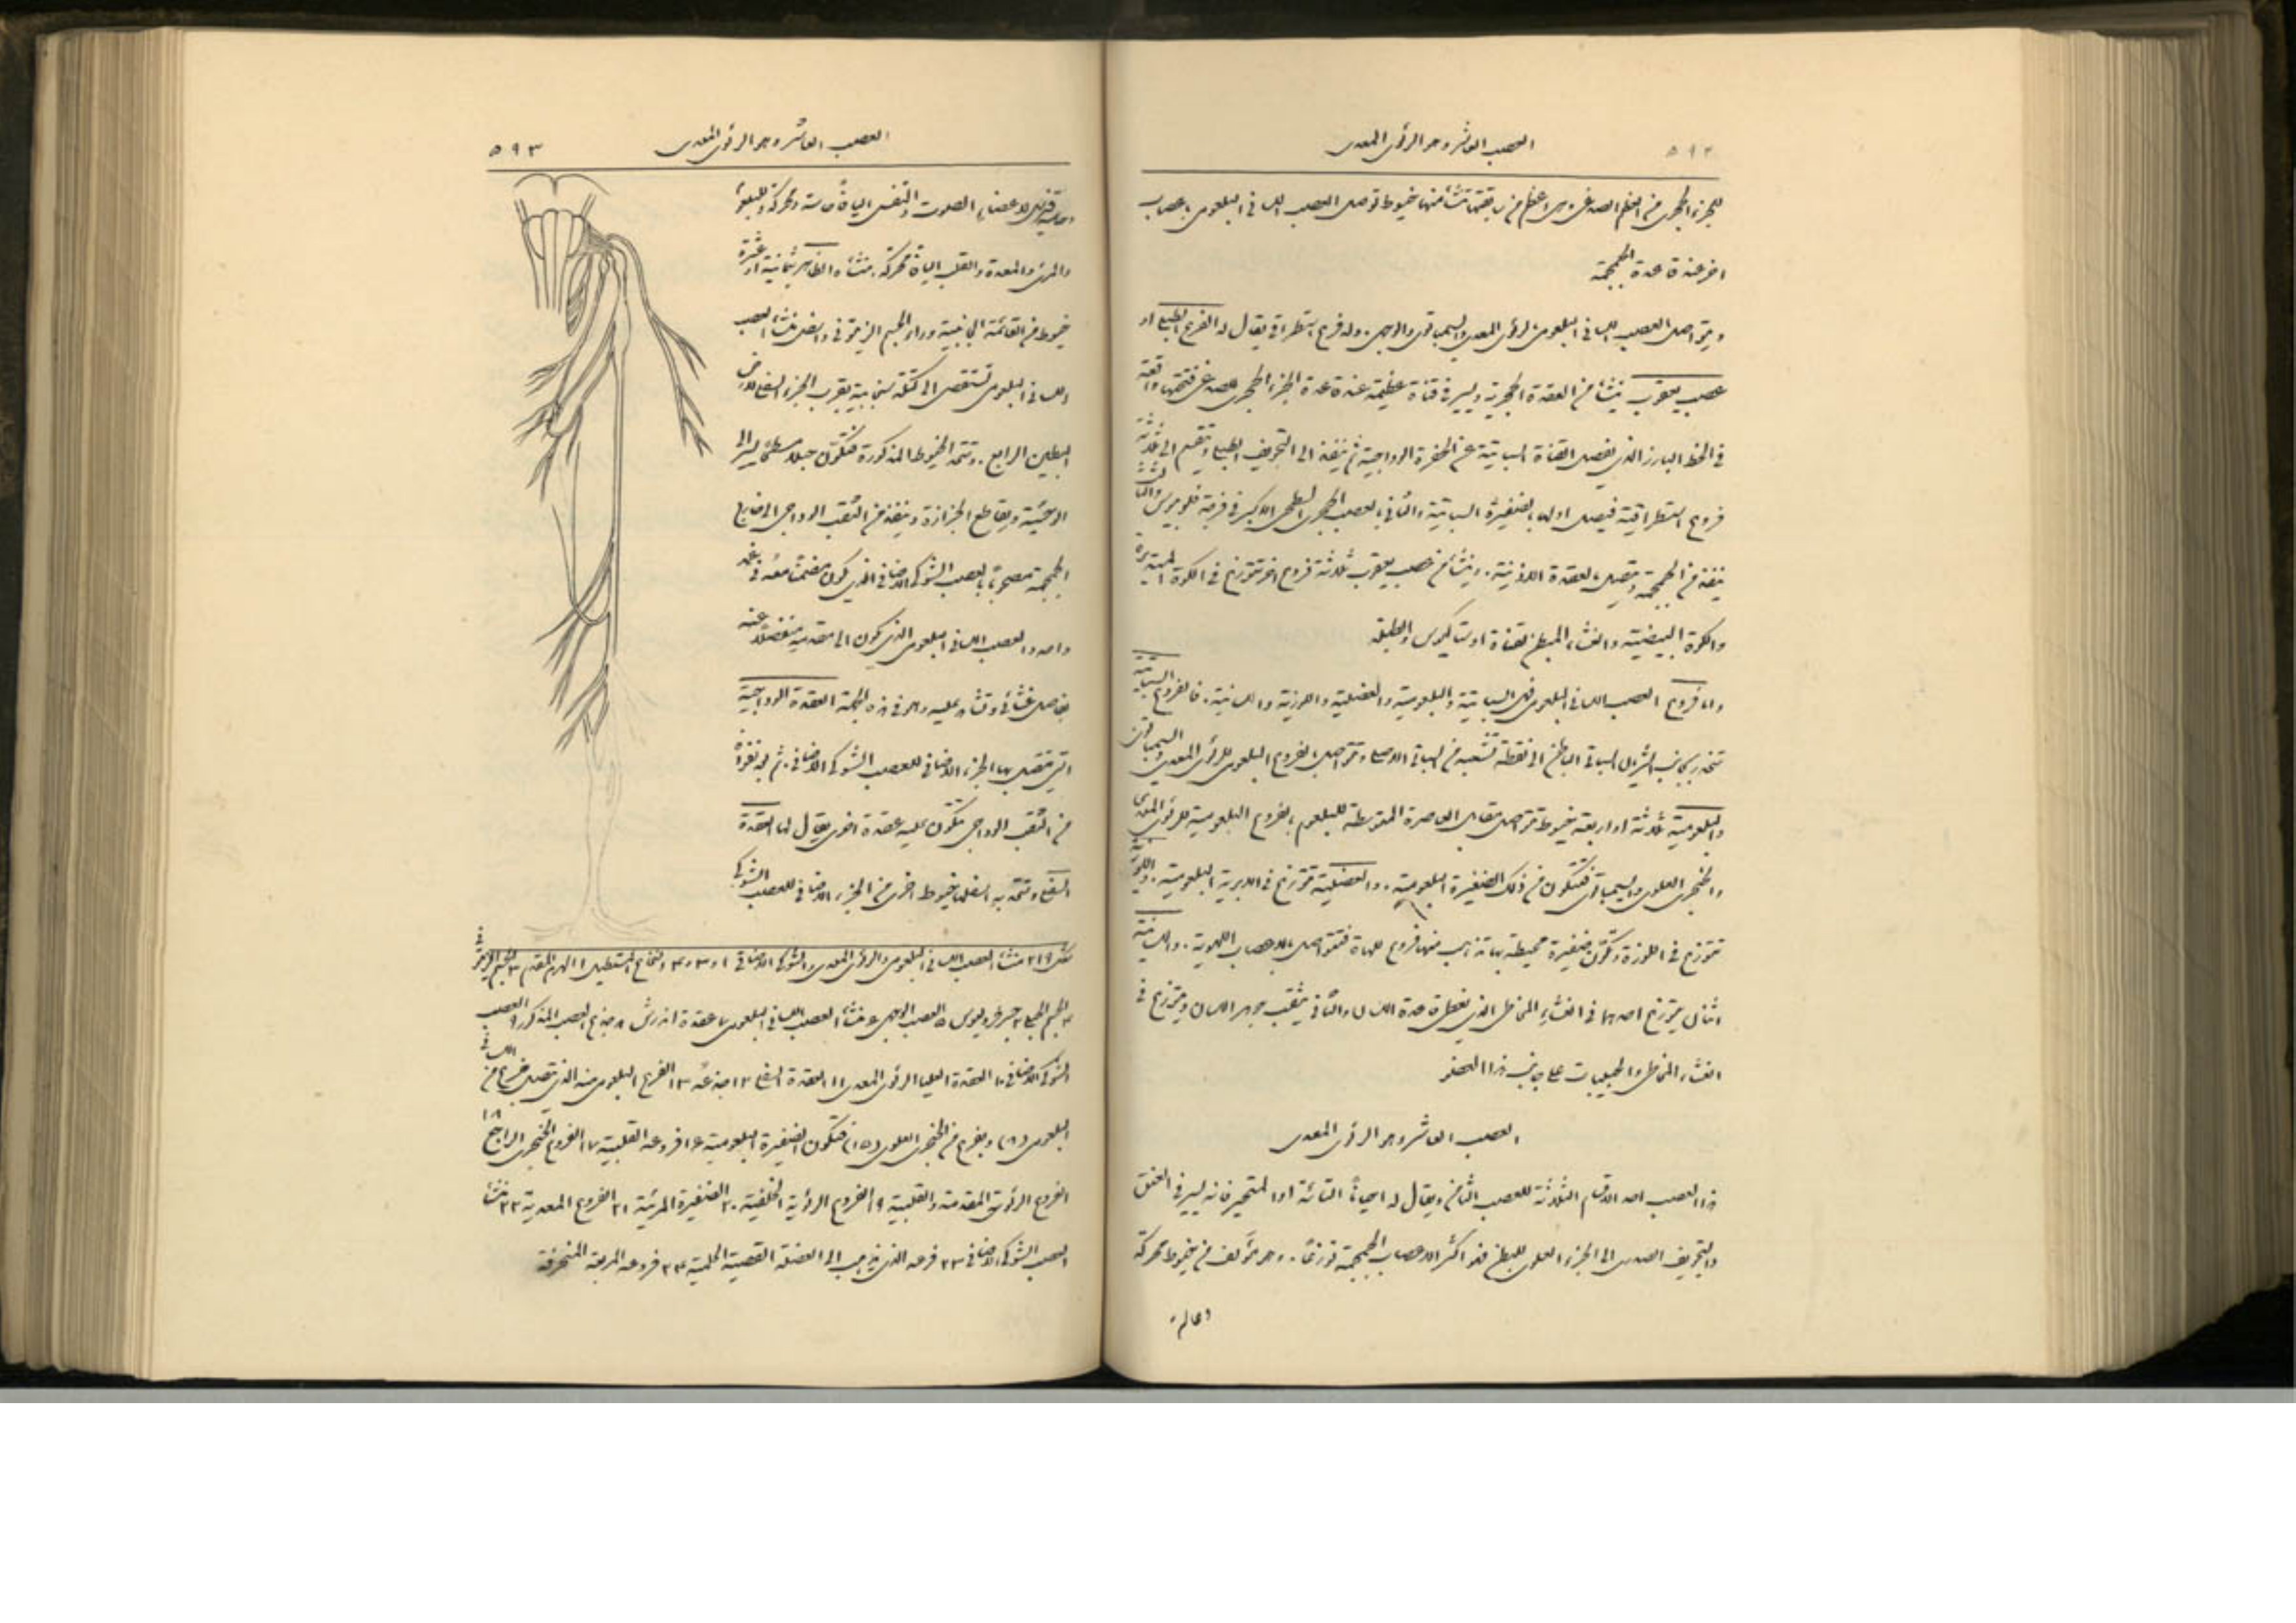 ٥٩٢
العصب العاشر وهو الرئوي المعدي
للجزء الحجري من العظم الصدغي وهي اعظم من رفيقتها تنشأ منها خيوط توصل العصب اللساني البلعومي باعصاب
اخر عند قاعدة الجمجمة
ويتواصل العصب اللساني البلعومي بالرئوي المعدي والسمباتوي والوجهي. وله فرع استطراقي يقال له الفرع الطبلي او
عصب يعقوب ينشأ من العقدة الحجرية ويسير في قناة عظيمة عند قاعدة الجزء الحجري للصدغي فتحتها واقعة
في الخط البارز الذي يفصل القناة السباتية عن الحفرة الوداجية ثم ينفذ الى التجويف الطبلي وينقسم الى ثلاثة
فروع استطراقية فيصل اولها بالضفيرة السباتية والثاني بالعصب الحجري السطحي الاكبر في فرجة فلوبيوس والثالث
ينفذ من الجمجمة ويتصل بالعقدة الاذنية. وينشأ من عصب يعقوب ثلاثة فروع اخر تتوزع في الكوة المستديرة
والكوة البيضية والغشاء المبطن لقناة اوستاكيوس والطبلة
واما فروع العصب اللساني البلعومي فهي السباتية والبلعومية والعضلية واللوزية واللسانية. فالفروع السباتية
تنحدر بجانب الشريان السباتي الباطن الى نقطة تشعبه من السباتي الاصلي وتتواصل بالفروع البلعومي للرئوي المعدي والسمباتوي
والبلعومية ثلاثة او اربعة خيوط تتواصل مقابل العاصرة المتوسطة للبلعوم بالفروع البلعومية للرئوي المعدي
والحنجري العلوي والسمباتوي فتتكون من ذلك الضفيرة البلعومية. والعضلية تتوزع في الابرية البلعومية. واللوزية
تتوزع في اللوزة وتكوّن ضفيرة محيطة بها تذهب منها فروع للهاة فتتواصل بالاعصاب اللهوية. واللسانية
اثنان يتوزع احدهما في الغشاء المخاطي الذي يغطي قاعدة اللسان والثاني يثقب جوهر اللسان ويتوزع في
الغشاء المخاطي والحليمات على جانب هذا العضو
العصب العاشر وهو الرئوي المعدي
هذا العصب احد الاقسام الثلاثة للعصب الثامن ويقال له احيانًا التائه او المتحير فانه يسير في العنق
والتجويف الصدري الى الجزء العلوي للبطن فهو اكثر الاعصاب الجمجمة توزعًا. وهو مؤلف من خيوط محركة
العصب العاشر وهو الرئوي المعدي
٥٩٣
وحاسة فهي لاعضاء الصوت والتنفس اليافًا حاسة ومحركة وللبلعوم
والمريء والمعدة والقلب اليافًا محركة. منشأه الظاهر ثمانية او عشرة
خيوط من القائمة الجانبية وراء الجسم الزيتوني واسفل منشأ العصب
اللساني البلعومي تستقصى الى كتلة سنجابية بقرب الجزء السفلي لارض
البطين الرابع. وتتحد الخيوط المذكورة فتكوّن حبلًا مسطحًا يسير الى
الوحشية ويقاطع الجزازة وينفذ من الثقب الوداجي الى خارج
الجمجمة مصحوبًا بالعصب الشوكي الاضافي الذي يكون متضمنًا معه في غمد
واحد والعصب اللساني البلعومي الذي يكون الى مقدمه منفصلًا عنه
بفاصل غشائي وتشاهد عليه وهو في هذه الجهة العقدة الوداجية
التي يتصل بها الجزء الاضافي للعصب الشوكي الاضافي. ثم بعد نفوذه
من الثقب الوداجي تتكون عليه عقدة اخرى يقال لها العقدة
السفلى وتتحد به اسفلها خيوط اخرى من الجزء الاضافي للعصب الشوكي
شكل ٢١٩ منشأ العصب اللساني البلعومي والرئوي المعدي والشوكي الاضافي ١ و٢ و٣ و٤ النخاع المستطيل ١ الهرم المقدم ٢ الجسم الزيتوني
٣ الجسم الحبلي ٤ جسر فروليوس ٥ العصب الوجهي ٦ منشأ العصب اللساني البلعومي ٧ عقدة اندرش ٨ جذع العصب المذكور ٩ العصب
الشوكي الاضافي ١٠ العقدة العليا الرئوي المعدي ١١ العقدة السفلى ١٢ جذعه ١٣ الفرع البلعومي منه الذي يتصل بفرع من اللساني
البلعومي (٨) وبفرع من الحنجري العلوي (١٥) فتكون الضفيرة البلعومية ١٦ فروعه القلبية ١٧ الفروع الحنجري الراجع ١٨
الفروع الرئوية المقدمة والقلبية ١٩ الفروع الرئوية الخلفية ٢٠ الضفيرة المريئية ٢١ الفروع المعدية ٢٢ منشأ
العصب الشوكي الاضافي ٢٣ فرعه الذي يذهب الى العضلة القصية الحلمية ٢٤ فروعه المربعة المنحرفة